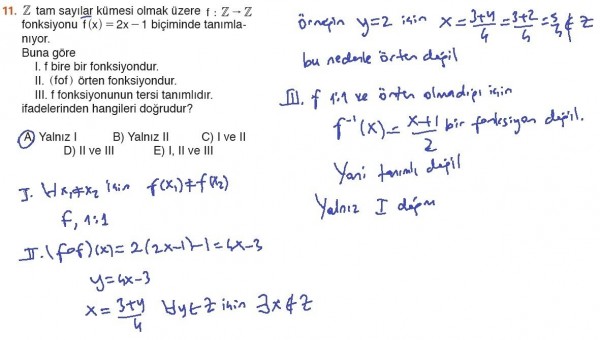 11. Z tam sayılar kümesi olmak üzere f : Z→Z
fonksiyonu f(x) = 2x − 1 biçiminde tanımla-
nıyor.
Buna göre
I. f bire bir fonksiyondur.
II. (fof) örten fonksiyondur.
III. f fonksiyonunun tersi tanımlıdır.
ifadelerinden hangileri doğrudur?
A) Yalnız I B) Yalnız II C) I ve II
D) II ve III E) I, II ve III
I. ∀x₁≠x₂ için f(x₁)≠f(x₂)
f, 1:1
II. (fof)(x) = 2(2x-1)-1 = 4x-3
y=4x-3
x = 3+y/4 ∀y∈Z için ∃x∉Z
örneğin y=2 için x = 3+y/4 = 3+2/4 = 5/4 ∉ Z
bu nedenle örten değil
III. f 1:1 ve örten olmadığı için
f⁻¹(x) = x+1/2 bir fonksiyon değil.
Yani tanımlı değil
Yalnız I